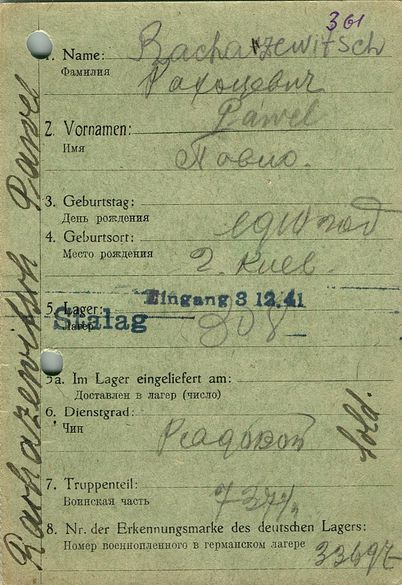 361
1. Name: Rachazewitsch
Фамилия
Рахоцевич
2. Vornamen: Pawel
Имя
Павло.
3. Geburtstag:
День рождения
4. Geburtsort:
Место рождения
г. Киев.
Eingang 3 12.41
5. Lager:
Лагерь
Stalag
308
5a. Im Lager eingeliefert am:
Доставлен в лагерь (число)
6. Dienstgrad:
Чин
Рядовой
Sold.
7. Truppenteil:
Воинская часть
737
8. Nr. der Erkennungsmarke des deutschen Lagers:
Номер военнопленного в германском лагере
Rachazewitsch Pawel